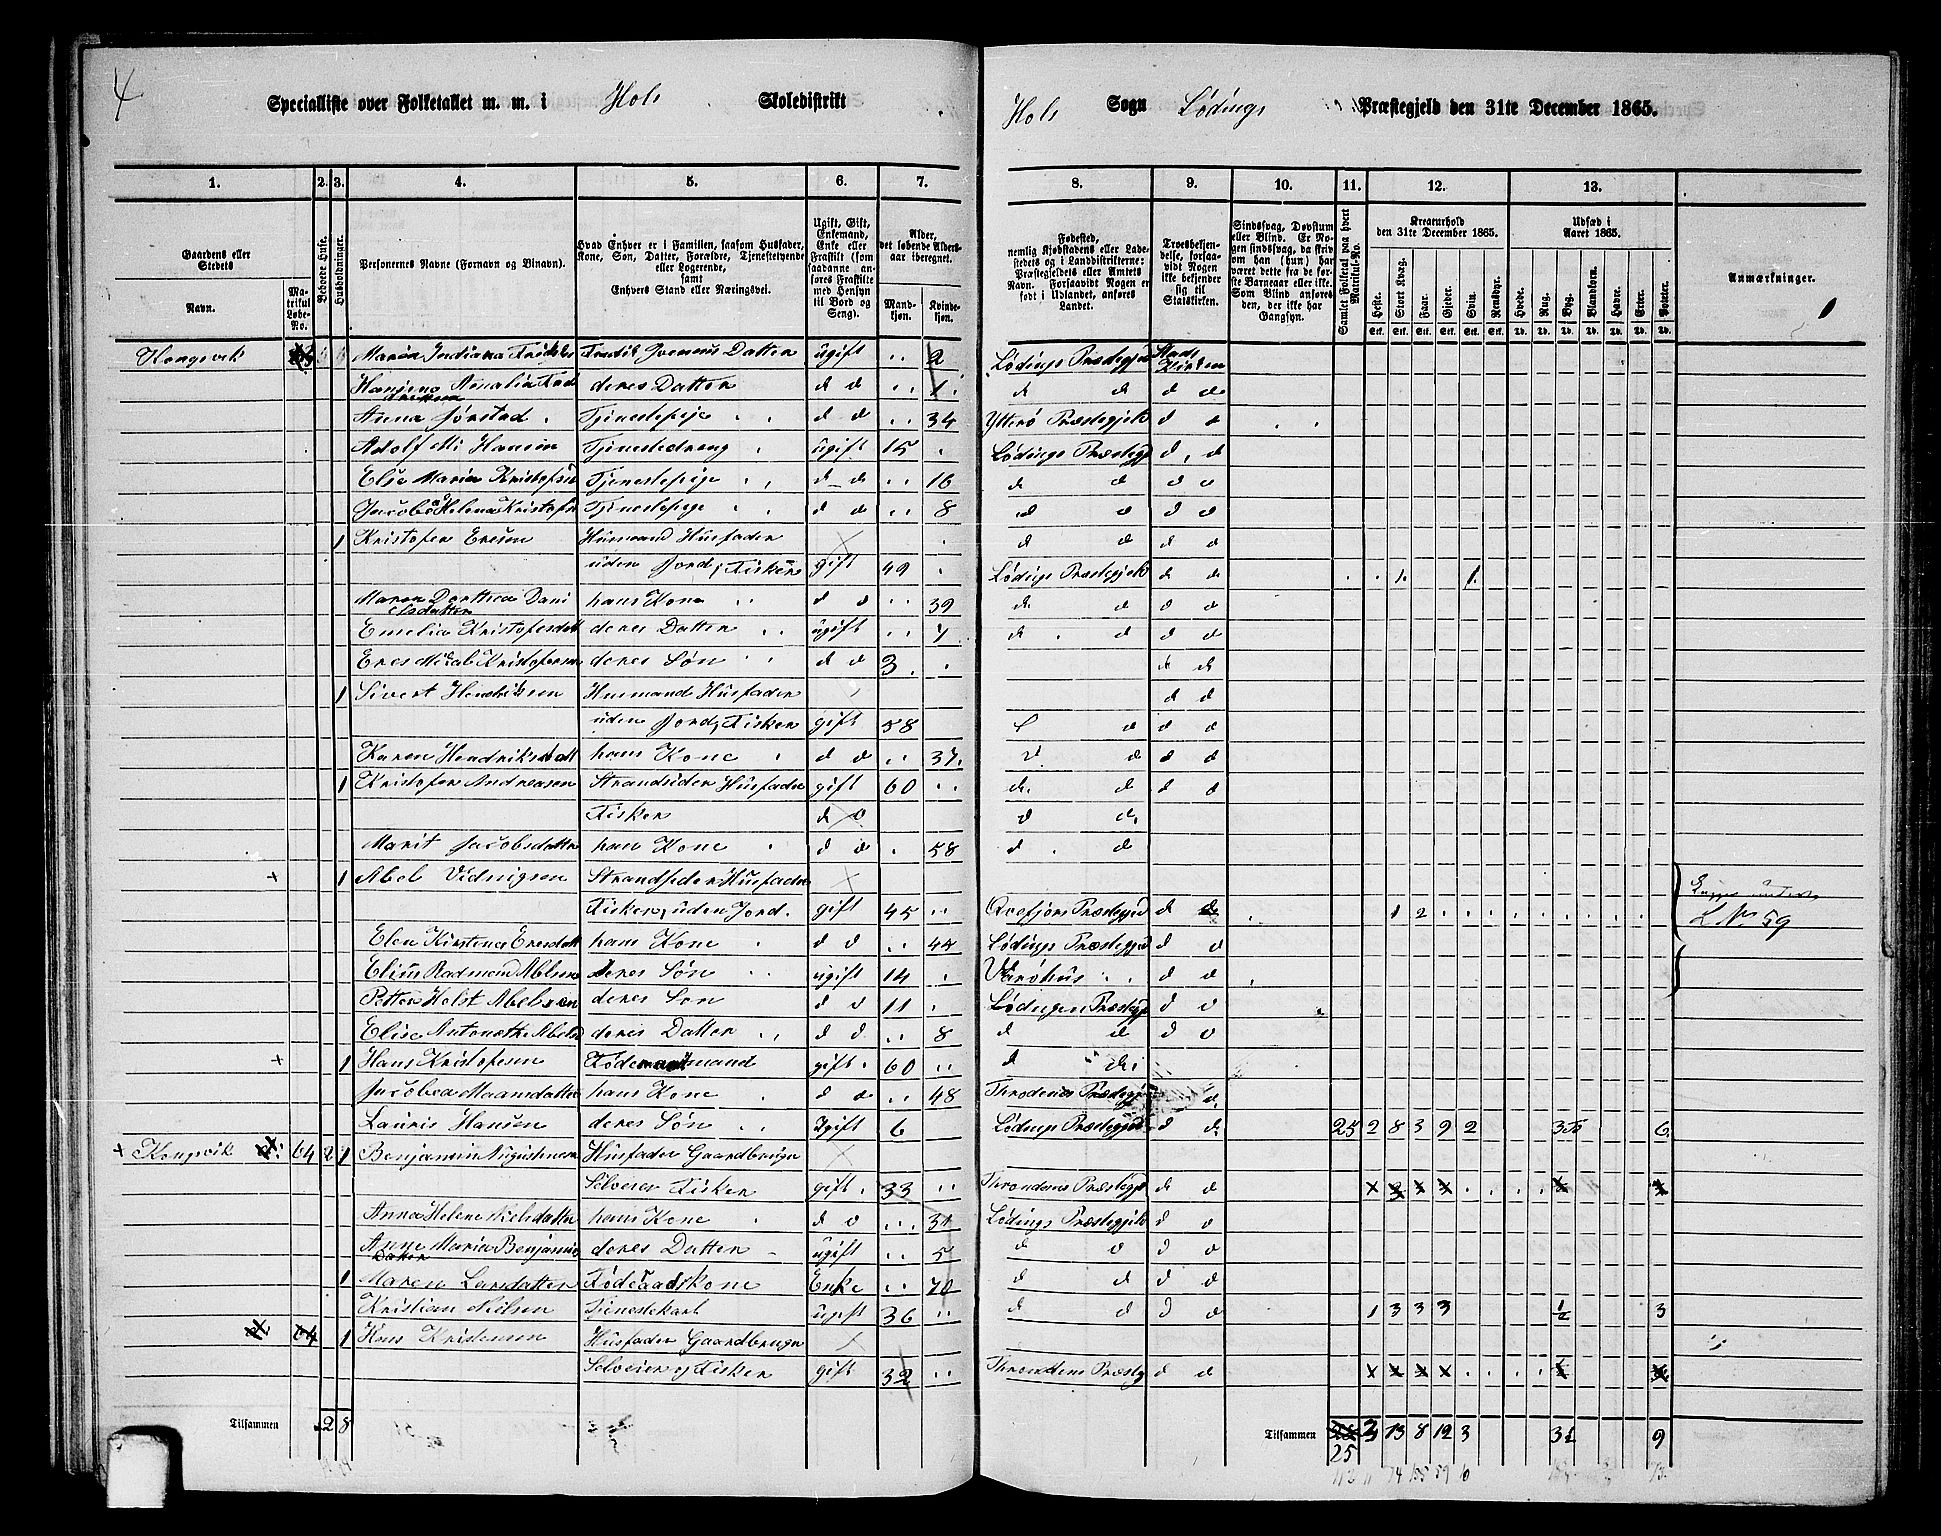 4
Specialliste over Folketallet m. m. i Hols Skoledistrikt
Hols Sogn Lødings Præstegjeld den 31te December 1865.
1. 2. 3. 4. 5. 6. 7. 8. 9. 10. 11. 12. 13.
Gaardens eller Stedets Navn.
Matrikul Løbe-No.
Beboede Huse.
Husholdninger.
Personernes Navne (Fornavn og Tilnavn).
Hvad Enhver er i Familien, saasom Husfader, Kone, Søn, Datter, Forældre, Tjenestetyende eller Logerende, samt Enhvers Stand eller Næringsvei.
Ugift, Gift, Enkemand, Enke eller Fraskilt (som saadanne anføres Fraskilte med Hensyn til Bord og Seng).
Alder, det løbende Aldersaar iberegnet.
Mandkjøn.
Kvindekjøn.
Fødested, nemlig Kjøbstadens eller Ladestedets og i Landdistrikterne: Præstegjeldets eller Amtets Navn. Forsaavidt Nogen er født i Udlandet, anføres Landet.
Troesbekjendelse, forsaavidt Nogen ikke bekjender sig til Statskirken.
Sindssvag, Døvstum eller Blind. Er Nogen sindssvag, da skrives om han (hun) har været dette fra de første Barneaar eller ikke. Som Blind anføres den, der ikke har Gangsyn.
Samlet Folketal paa hvert Matrikul-No.
Kreaturhold den 31te December 1865.
Heste. Stort Kvæg. Faar. Gjeder. Svin. Rensdyr.
Udsæd i Aaret 1865.
Hvede. Rug. Byg. Blandkorn. Havre. Erter. Poteter.
Anmærkninger.
Maren Indiana deres Datter ugift 2 Lødings Præstegjeld Stads Kirken
Hansine Amalia deres Datter d d 1 d d d d
Anna Jørstad Tjenestepige d d 34 Ytterø Præstegjeld d d
Adolf Mi Hansen Tjenestedreng ugift 15 Lødings Præstegj d d
Elie Maria Kristofsen Tjenestepige d d 16 d d d d
Jacoba Helena Kristofer Tjenestepige d d 8 d d d d
1 Kristofer Ersen Husmand Husfader d d d d
uden Jord, Fisker gift 49 Lødings Præstegjeld d d 1 1
Maren Dorthea Danielsdatter hans Kone d d 39 d d d d
Emelia Kristofersdatt deres Datter ugift 7 d d d d
Kristofersen deres Søn d d 3 d d
1 Sivert Hendriksen Husmand Husfader d d
uden Jord, Fisker gift 58 d d d
Karen Hendriksdatt hans Kone d d 37 d d d d
1 Kristofer Andreasen Strandsider Husfader gift 60 d d d d
Fisker d d d d
Marit Jacobsdatter hans Kone d d 58 d d
+ 1 Abel Vidnigsen Strandsider Husfader
Fisker, uden Jord. gift 45 Qvefjors Præstegjed d d 1 2 L No 59
Elen Kirstena Eresdatt hans Kone d d 44 Lødings Præstegjed d d
Elius Radmand Abelsen deres Søn ugift 14 Varøhus d d
Petter Holst Abelsen deres Søn d d 11 Lødingen Præstegj d d
Elise Antonette Abels deres Datter d d 8 d d d d
+ 1 Hans Kristofersen Føderaadsmand gift 60 d d
Jacobea Maansdatter hans Kone d d 48 Throdenes Præstegj d
Lauris Hansen deres Søn ugift 6 Lødings Præstegjed d d 25 2 8 3 9 2 6
+ Kongsvik 64 2 1 Benjamin Augustinusen Husfader Gaardbruger
Selveier Fisker gift 33 Throndenes Præstegj d d
Anna Helene Nielsdatter hans Kone d d 31 Lødings Præstegjeld d d
Anne Maria Benjamins Datter deres Datter ugift 5 d d d d
1 Maren Larsdatter Føderaadskone Enke 70 d d d d
Kristian Nielsen Tjenestekarl ugift 36 d d d d 1 3 3 3 1/2 3
64 1 Hans Kristensen Husfader Gaardbruger
Selveier og Fisker gift 32 Throndenes Præstegj d d
Tilsammen 2 8
Tilsammen 25 3 13 8 12 3 9